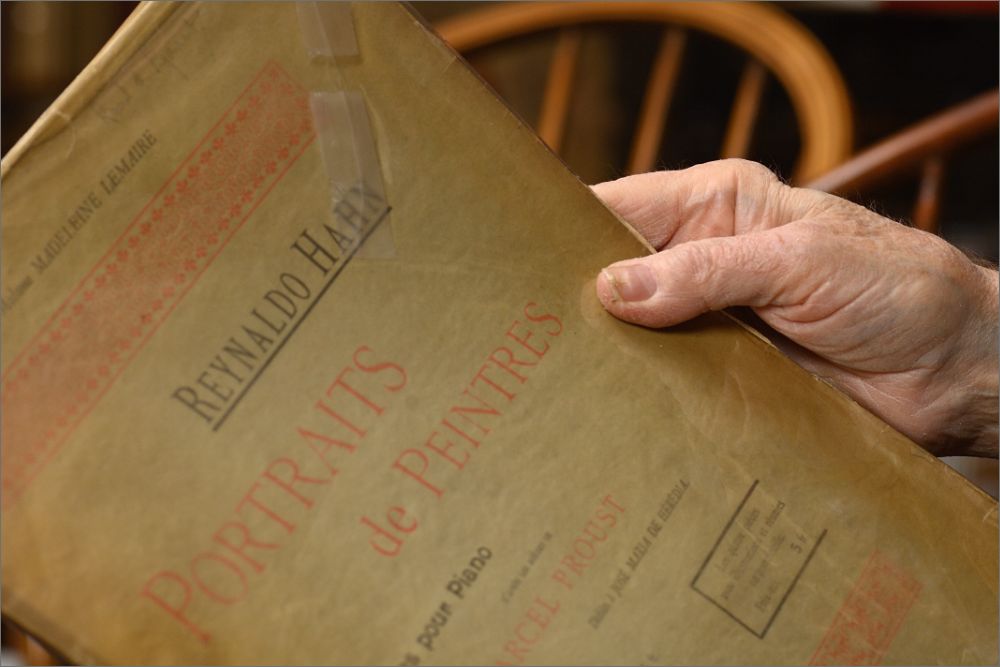 MADELEINE LEMAIRE
REYNALDO HAHN
PORTRAITS
de PEINTRES
pour Piano
MARCEL PROUST
Dédiés à JOSÉ MARIA DE HÉRÉDIA